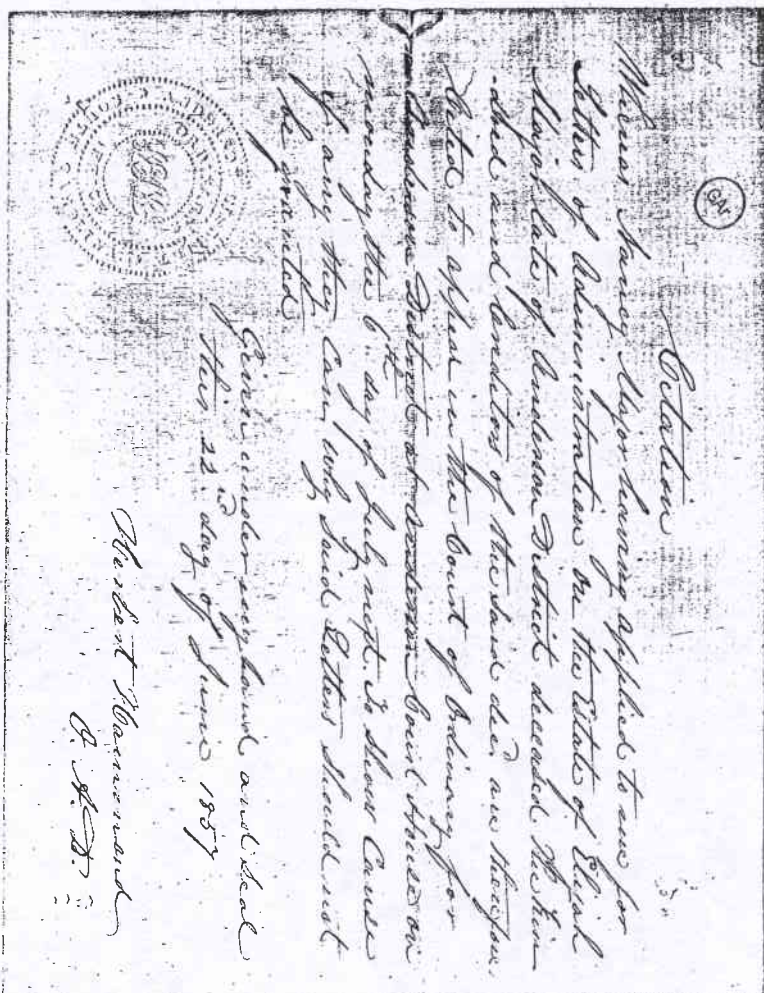 GAr
Citation
Whereas Nancy Major having applied to me for
Letters of Administration on the Estate of Elijah
Major late of Anderson District deceased The Kin
-dred and Creditors of the said decd are therefore
Cited to appear in the Court of Ordinary for
Anderson District at Anderson Court House on
monday the 6th day of July next to show Cause
if any they Can, why said Letters should not
be granted.
Given under my hand and Seal
this 22nd day of June 1857
Herbert Hammond
O. A. D.
SEAL